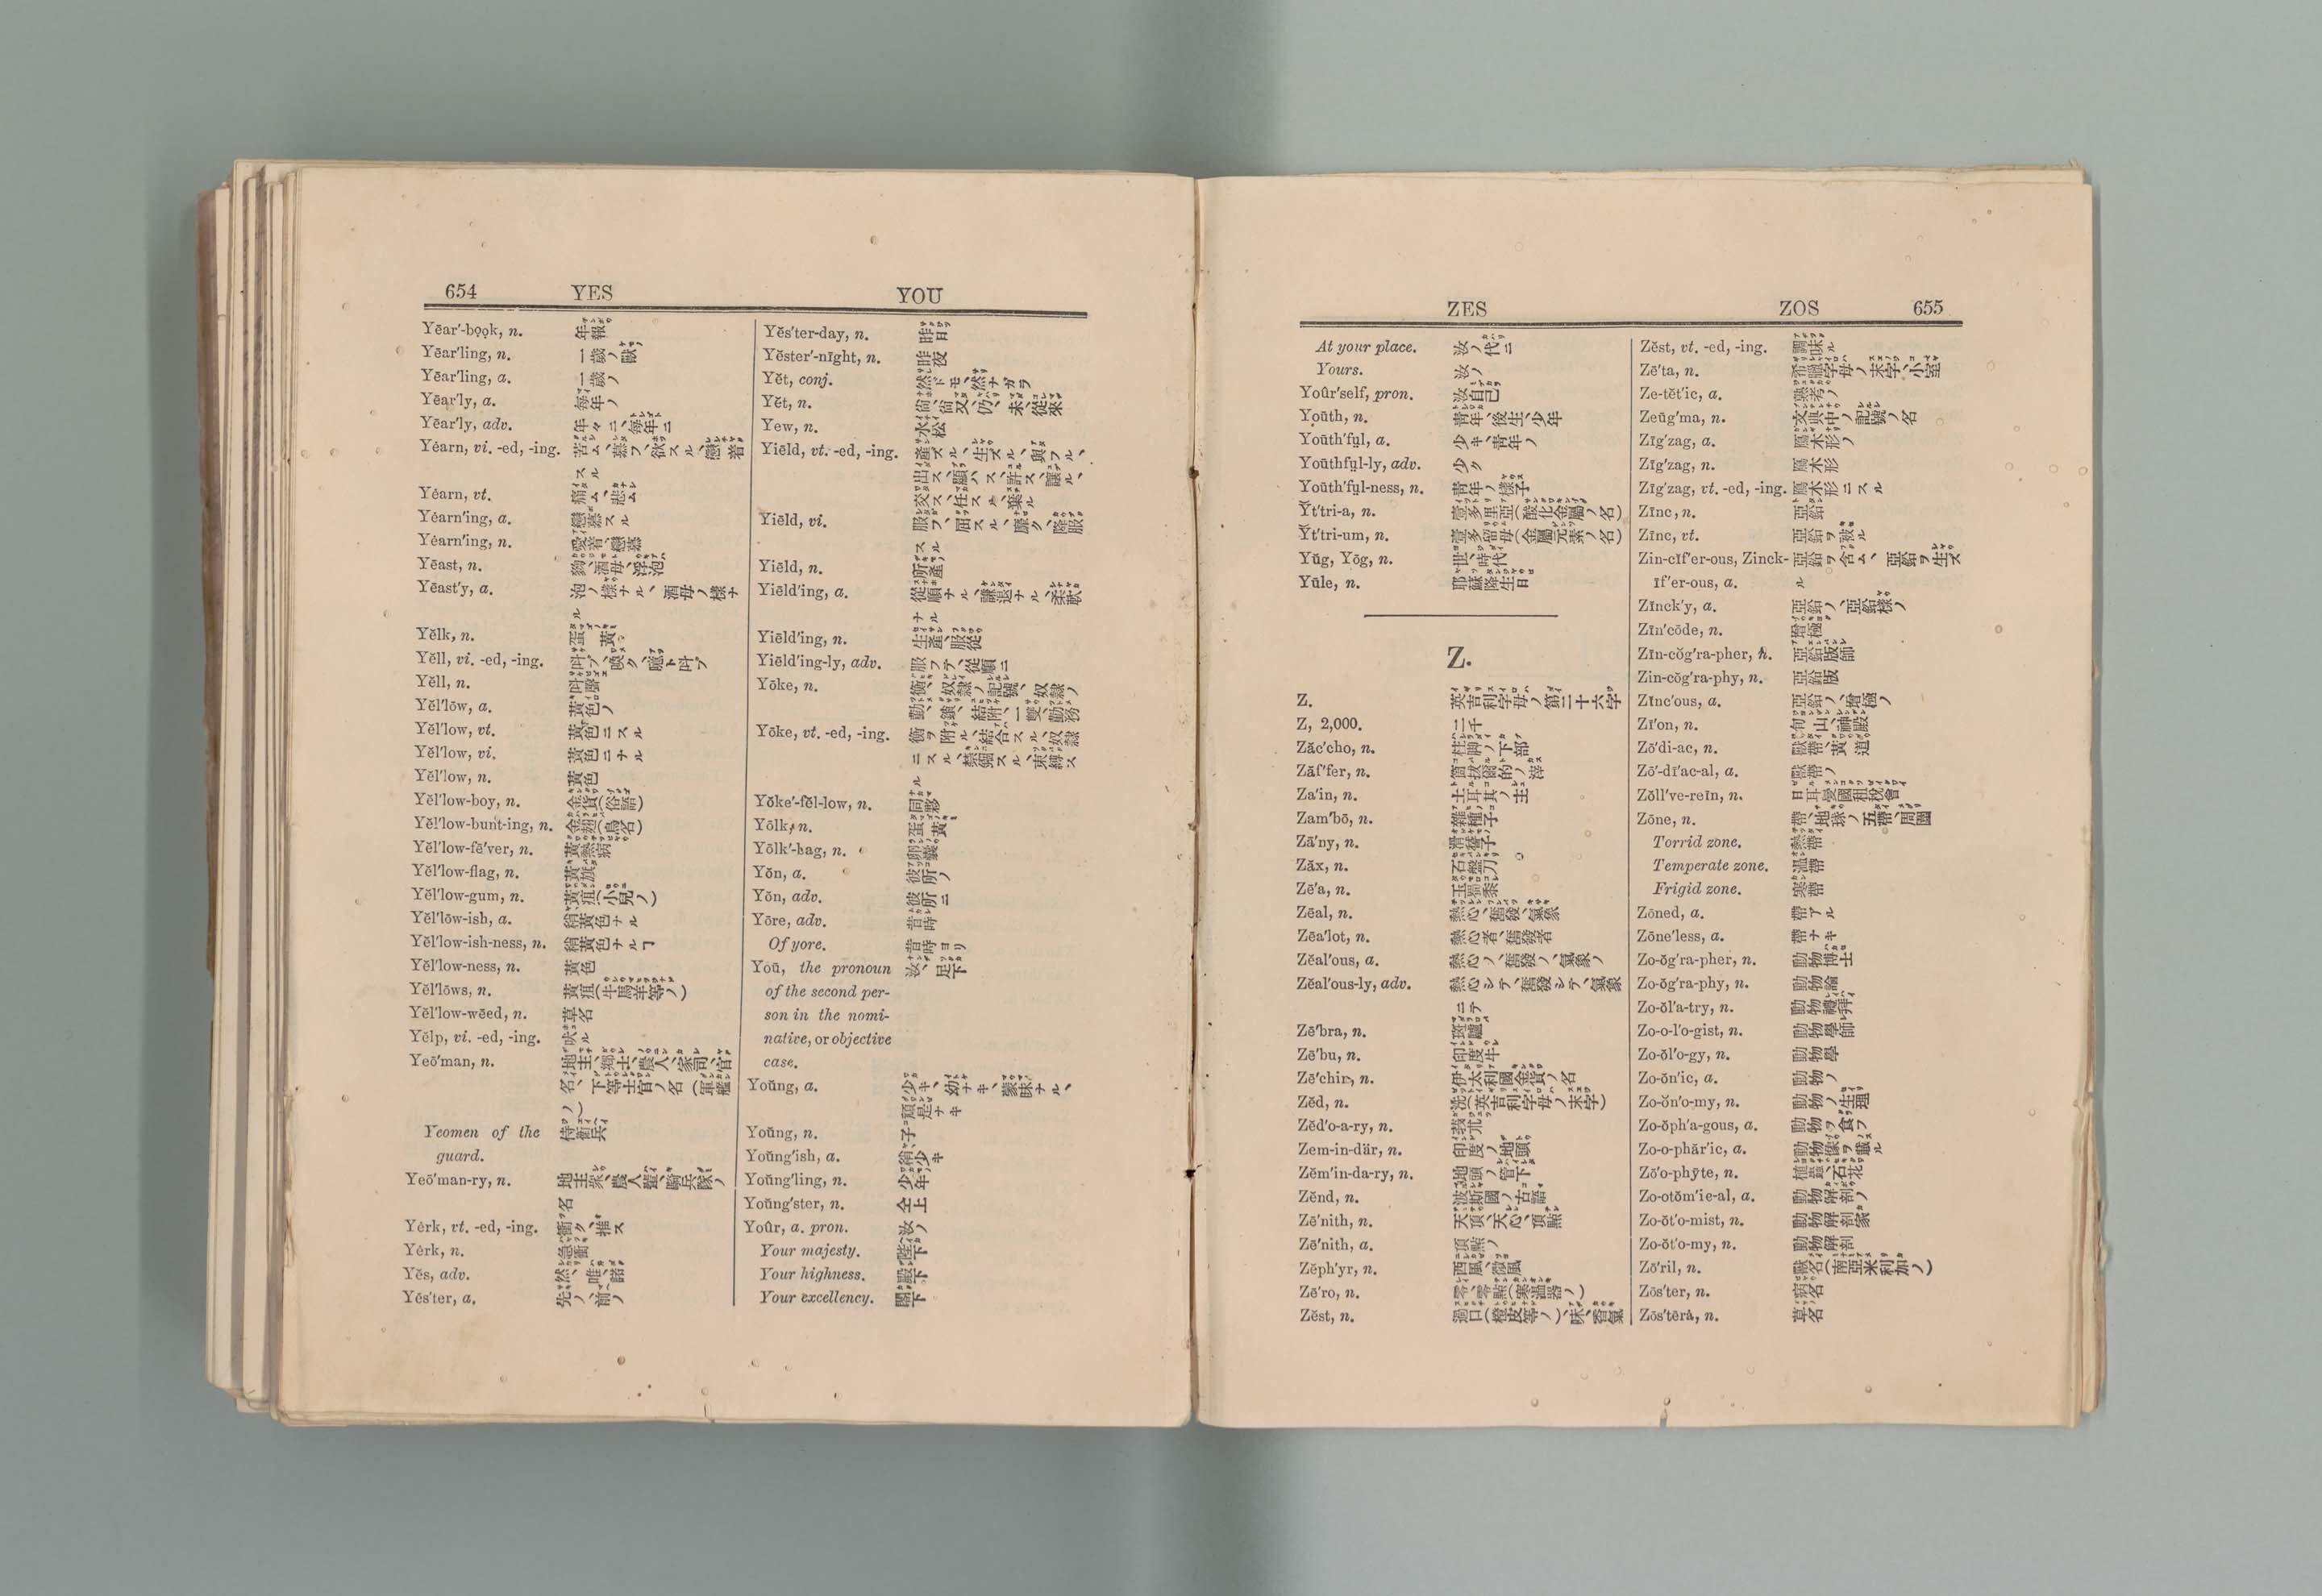 654 YES YOU
Yēar′-bo͝ok, n. 年報
Yēar′ling, n. 一歳ノ獸
Yēar′ling, a. 一歳ノ
Yēar′ly, a. 毎年ノ
Yēar′ly, adv. 年々ニ、毎年ニ
Yẽarn, vi. -ed, -ing. 苦ム、慕フ、欲スル、戀着
スル
Yẽarn, vt. 痛ム、悲ム
Yẽarn′ing, a. 戀慕スル
Yẽarn′ing, n. 愛着、戀慕
Yēast, n. 麹、酒母、浮泡
Yēast′y, a. 泡ノ樣ナル、酒母ノ樣ナ
ル
Yĕlk, n. 蛋黃
Yĕll, vi. -ed, -ing. 叫ブ、喚ク、
Yĕll, n. 叫聲
Yĕl′lōw, a. 黃色ノ
Yĕl′low, vt. 黃色ニスル
Yĕl′low, vi. 黃色ニナル
Yĕl′low, n. 黃色
Yĕl′low-boy, n. 金貨(俗語)
Yĕl′low-bunt-ing, n. (鳥名)
Yĕl′low-fē′ver, n. 黃熱病
Yĕl′low-flag, n. 黃旗
Yĕl′low-gum, n. 黃疸(小兒ノ)
Yĕl′lōw-ish, a. 稍黃色ナル
Yĕl′low-ish-ness, n. 稍黃色ナルヿ
Yĕl′low-ness, n. 黃色
Yĕl′lōws, n. 黃疸(牛馬羊等ノ)
Yĕl′low-wēed, n. 草名
Yĕlp, vi. -ed, -ing. 吠ル
Yeō′man, n. 地主、鄉士、農人、家司、官
名、下等士官ノ名(軍艦
ノ)
Yeomen of the 侍衛兵
guard.
Yeō′man-ry, n. 地主衆、農人叢、騎兵隊ノ
名
Yẽrk, vt. -ed, -ing. 衝ク、推ス
Yẽrk, n. 急衝
Yĕs, adv. 然、唯、諾
Yĕs′ter, a. 先ノ、前ノ
Yĕs′ter-day, n. 昨日
Yĕster′-nīght, n. 昨夜
Yĕt, conj. 然ドモ、然ナガラ
Yĕt, n. 尙、尙又、仍、未、從來
Yew, n. 水松
Yiēld, vt. -ed, -ing. 產ズル、生ズル、與フル、
出ス、顯ハス、許ス、讓ル、
交ス、任スル、棄ル
Yiēld, vi. 服フ、屈スル、靡ク、降服
スル
Yiēld, n. 所產
Yiēld′ing, a. 從順ナル、謙退ナル、柔軟
ナル
Yiēld′ing, n. 生產、服從
Yiēld′ing-ly, adv. 服フテ、從順ニ
Yōke, n. 衡、奴隷ノ記號、奴隷ノ
勤、鎖、結附、一雙、勤務
Yōke, vt. -ed, -ing. 衡ヲ附ル、結合スル、奴隷
ニスル、禁錮スル、束縛ス
ル
Yōke′-fĕl-low, n. 同夥
Yōlk, n. 蛋黃
Yōlk′-bag, n. 卵囊
Yŏn, a. 彼所ノ
Yŏn, adv. 彼所ニ
Yōre, adv. 昔時
Of yore. 昔時ヨリ
Yoū, the pronoun 汝、足下
of the second per-
son in the nomi-
native, or objective
case.
Yoŭng, a. 少キ、幼ナキ、蒙昧ナル、
頑是ナキ
Yoŭng, n. 子
Yoŭng′ish, a. 稍少キ
Yoŭng′ling, n. 少年
Yoŭng′ster, n. 仝上
Yoûr, a. pron. 汝ノ
Your majesty. 陛下
Your highness. 殿下
Your excellency. 閣下
ZES ZOS 655
At your place. 汝ノ代ニ
Yours. 汝ノ
Yoûr′self, pron. 汝自己
Yoūth, n. 靑年、後生、少年
Yoūth′ful, a. 少キ、靑年ノ
Yoūthful-ly, adv. 少ク
Yoūth′ful-ness, n. 靑年ノ樣子
Y̆t′tri-a, n. 壹多里亞(酸化金屬ノ名)
Y̆t′tri-um, n. 壹多留母(金屬元素ノ名)
Yŭg, Yŏg, n. 世、時代
Yūle, n. 耶蘇降生日
Z.
Z. 英吉利字母ノ第二十六字
Z, 2,000. 二千
Zăc′cho, n. 柱脚ノ下部
Zăf′fer, n. 箇拔爾的ノ滓
Za′in, n. 土耳其ノ主
Zam′bō, n. 雜種子
Zā′ny, n. 滑稽子
Zăx, n. 石盤刀
Zē′a, n. 玉蜀黍
Zēal, n. 熱心、奮發、氣象
Zĕa′lot, n. 熱心者、奮發者
Zĕal′ous, a. 熱心ノ、奮發ノ、氣象ノ
Zĕal′ous-ly, adv. 熱心シテ、奮發シテ、氣象
ニテ
Zē′bra, n. 斑驢
Zē′bu, n. 印度牛
Zē′chin, n. 伊太利國金貨ノ名
Zĕd, n. 洗(英吉利字母ノ末字)
Zĕd′o-a-ry, n. 莪朮
Zem-in-där, n. 印度ノ地頭
Zĕm′in-da-ry, n. 地頭ノ官下
Zĕnd, n. 波斯國ノ古語
Zē′nith, n. 天頂、天心、頂點
Zē′nith, a. 頂點ノ
Zĕph′yr, n. 西風、微風
Zē′ro, n. 零、零點(寒温器ノ)
Zĕst, n. (橙皮等ノ)、味、香氣
Zĕst, vt. -ed, -ing. 調味ル
Zē′ta, n. 希臘字母ノ末字、小室
Ze-tĕt′ic, a. 熟考ノ
Zeūg′ma, n. 文典中ノ記號ノ名
Zĭg′zag, a. 厲木形ノ
Zĭg′zag, n. 厲木形
Zĭg′zag, vt. -ed, -ing. 厲木形ニスル
Zĭnc, n. 亞鉛
Zĭnc, vt. 亞鉛ヲ被ル
Zin-cĭf′er-ous, Zinck- 亞鉛ヲ含ム、亞鉛ヲ生ズ
ĭf′er-ous, a. ル
Zĭnck′y, a. 亞鉛ノ、亞鉛樣ノ
Zĭn′cōde, n. 增極
Zĭn-cŏg′ra-pher, n. 亞鉛版師
Zin-cŏg′ra-phy, n. 亞鉛版
Zĭnc′ous, a. 亞鉛ノ、增極ノ
Zī′on, n. 旬山、神殿
Zō′di-ac, n. 獸帶、黃道
Zō′-dī′ac-al, a. 獸帶ノ
Zŏll′ve-reīn, n. 日耳曼國租稅會
Zōne, n. 帶、地球ノ五帶、周圍
Torrid zone. 熱帶
Temperate zone. 温帶
Frigid zone. 寒帶
Zōned, a. 帶アル
Zōne′less, a. 帶ナキ
Zo-ŏg′ra-pher, n. 動物博士
Zo-ŏg′ra-phy, n. 動物論
Zo-ŏl′a-try, n. 動物禮拜
Zo-o-l′o-gist, n. 動物學師
Zo-ŏl′o-gy, n. 動物學
Zo-ŏn′ic, a. 動物ノ
Zo-ŏn′o-my, n. 動物ノ生理
Zo-ŏph′a-gous, a. 動物ヲ食フ
Zo-o-phăr′ic, a. 動物像ヲ載ル
Zō′o-phȳte, n. 植蟲、石花
Zo-otŏm′ie-al, a. 動物解剖ノ
Zo-ŏt′o-mist, n. 動物解剖家
Zo-ŏt′o-my, n. 動物解剖
Zō′ril, n. 獸名(南亞米利加ノ)
Zŏs′ter, n. 病名
Zŏs′tēra, n. 草名